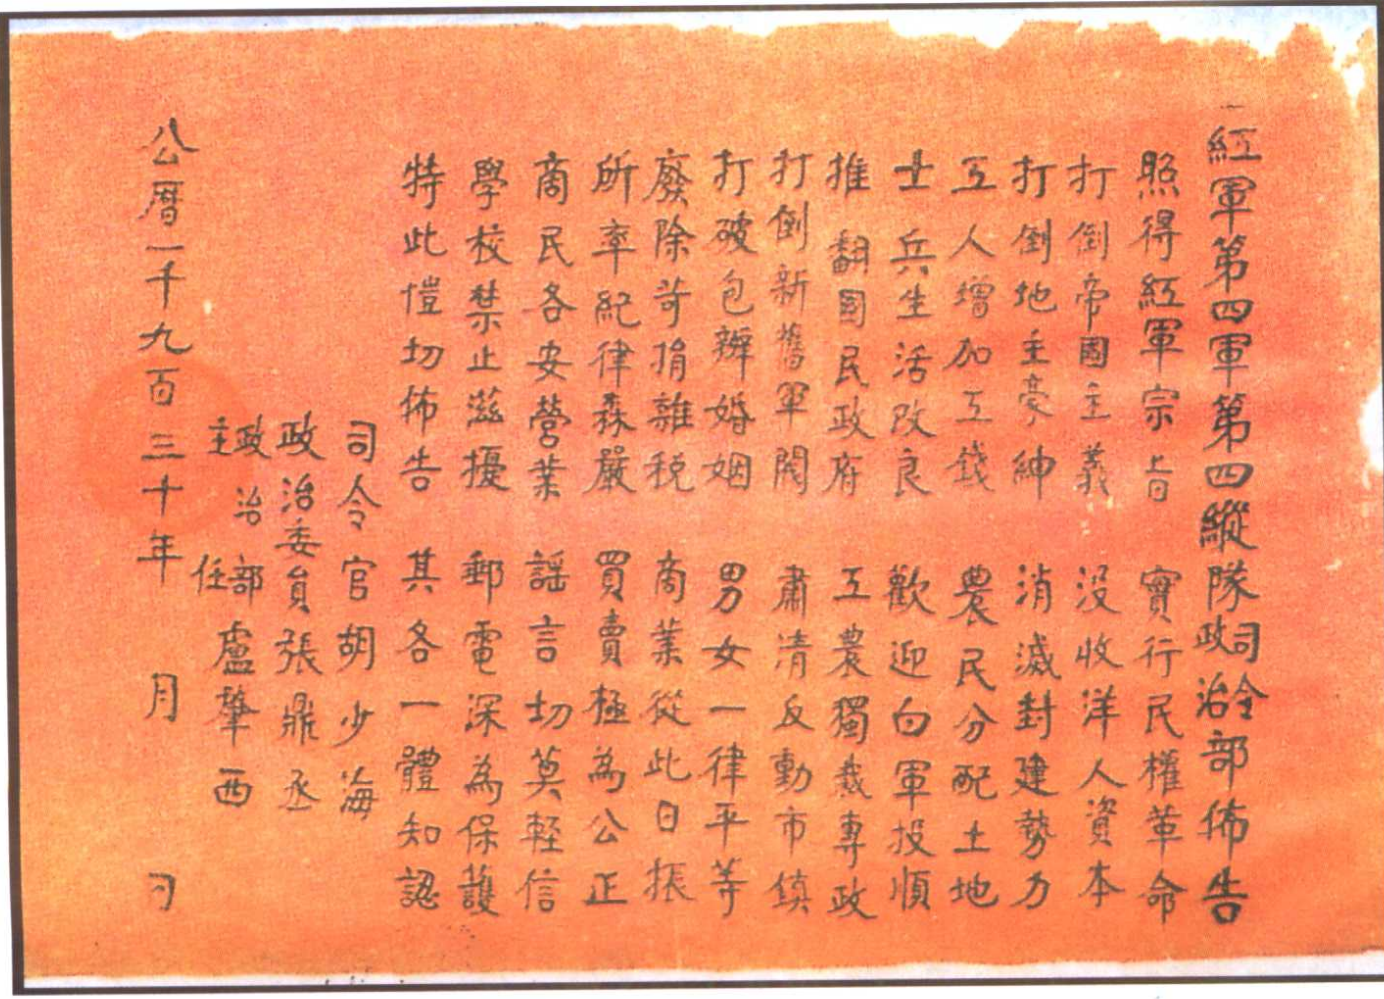 紅軍第四軍第四縱隊司令政治部佈告
照得紅軍宗旨 實行民權革命
打倒帝國主義 沒收洋人資本
打倒地主豪紳 消滅封建勢力
工人增加工錢 農民分配土地
士兵生活改良 歡迎白軍投順
推翻國民政府 工農獨裁專政
打倒新舊軍閥 肅清反動市鎮
打破包辦婚姻 男女一律平等
廢除苛捐雜稅 商業從此日振
所率紀律森嚴 買賣極為公正
商民各安營業 謡言切莫輕信
學校禁止滋擾 郵電深為保護
特此愷切佈告 其各一體知認
司令官胡少海
政治委員張鼎丞
政治部主任盧肇西
公曆一千九百三十年 月